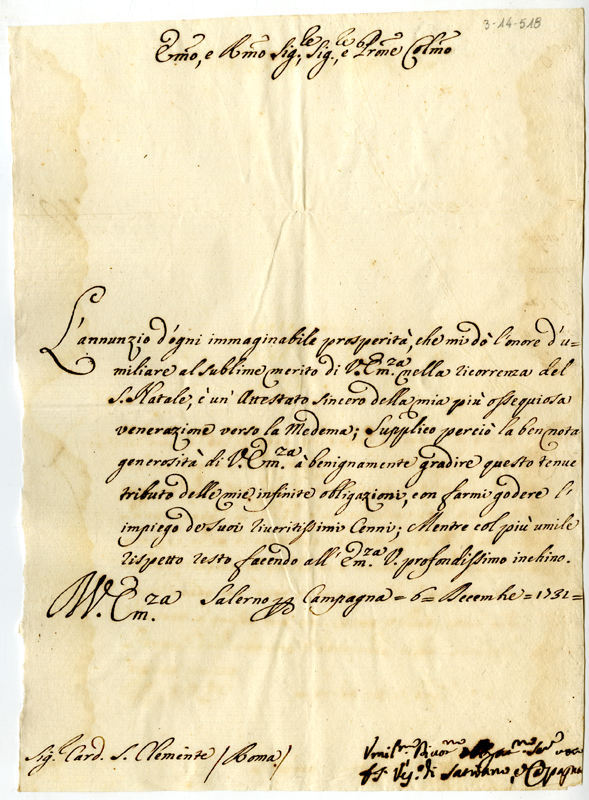 3-14-518
Emo, e Rmo Sig.re, Sig.re, e Prone Colmo
L'annunzio d'ogni immaginabile prosperità, che mi dò l'onore d'u=
miliare al sublime merito di V. Em.za nella ricorrenza del
S. Natale, è un' Attestato sincero della mia più ossequiosa
venerazione verso la Medema; Supplico perciò la ben nota
generosità di V. Em.za à benignamente gradire questo tenue
tributo delle mie infinite obligazioni, con farmi godere l'
impiego de suoi riveritissimi Cenni; Mentre col più umile
rispetto resto facendo all' Em.za V. profondissimo inchino.
V. Em.za Salerno Campagna = 6 = Decembe = 1731 =
Sig. Card. S. Clemente / Roma /
Umil.mo Divot.mo